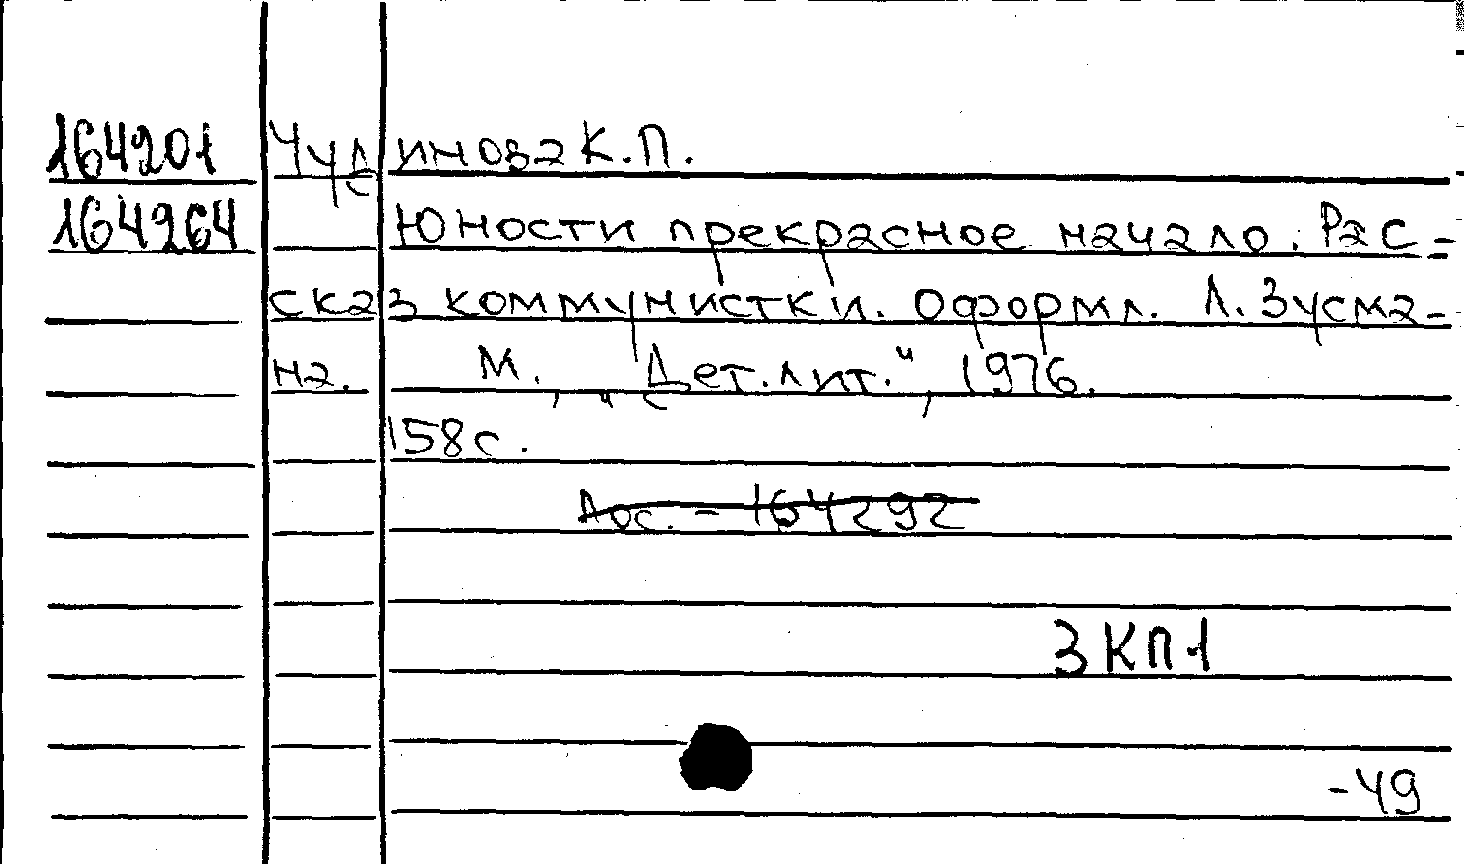 164201 Чудинова К.П.
164264 Юности прекрасное начало. Рас-
сказ коммунистки. Оформл. Л. Зусма-
на. М., „Дет. лит.", 1976.
158с.
Лос. - 164292
3КП1
-49